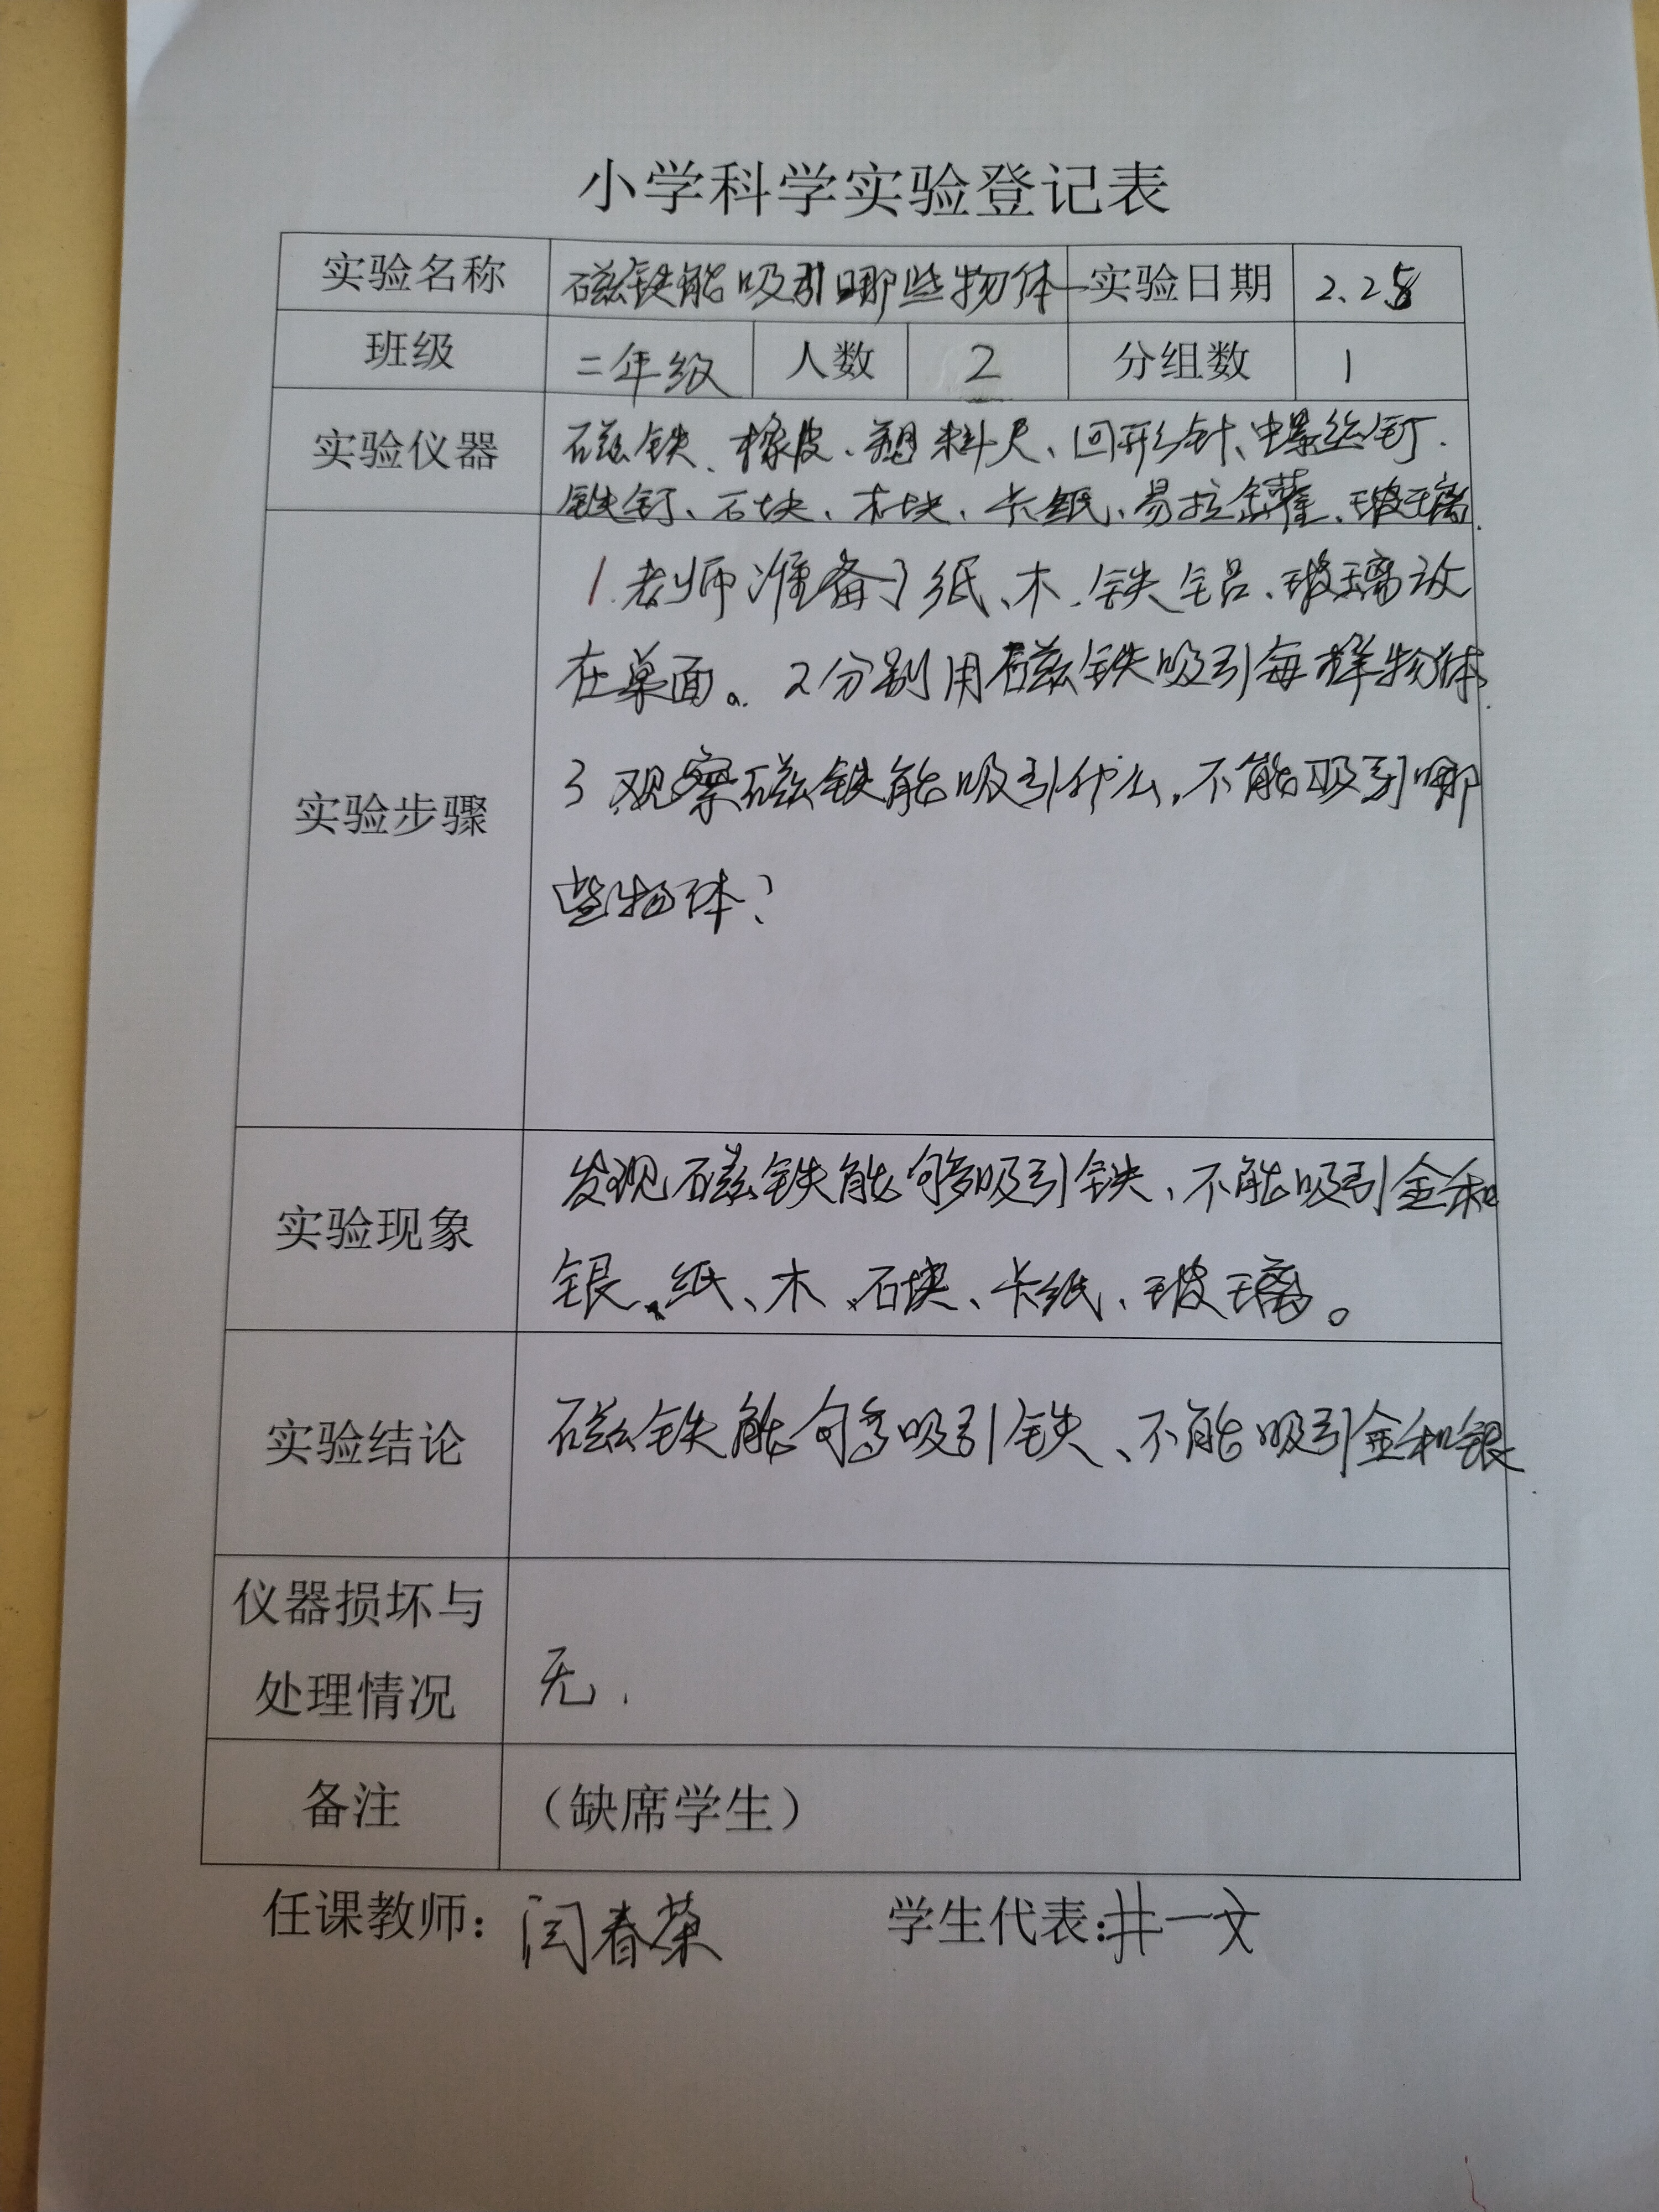 小学科学实验登记表
实验名称 磁铁能吸引哪些物体 实验日期 2.28
班级 二年级 人数 2 分组数 1
实验仪器 磁铁、橡皮、塑料尺、回形针、螺丝钉.
铁钉、石块、木块、卡纸、易拉罐、玻璃.
1.老师准备了纸、木、铁铝、玻璃放
在桌面。2分别用磁铁吸引每样物体.
实验步骤 3观察磁铁能吸引什么,不能吸引哪
些物体?
发现磁铁能够吸引铁、不能吸引金和
实验现象
银、纸、木、石块、卡纸、玻璃。
实验结论 磁铁能够吸引铁、不能吸引金和银.
仪器损坏与
处理情况 无.
备注 (缺席学生)
任课教师: 闫春荣 学生代表: 井一文